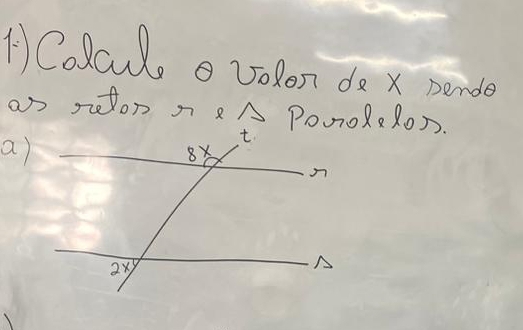 1.) Calcule o valor de x sendo
as retas r e s paralelas.
a)
t
8x
r
2x
s
)